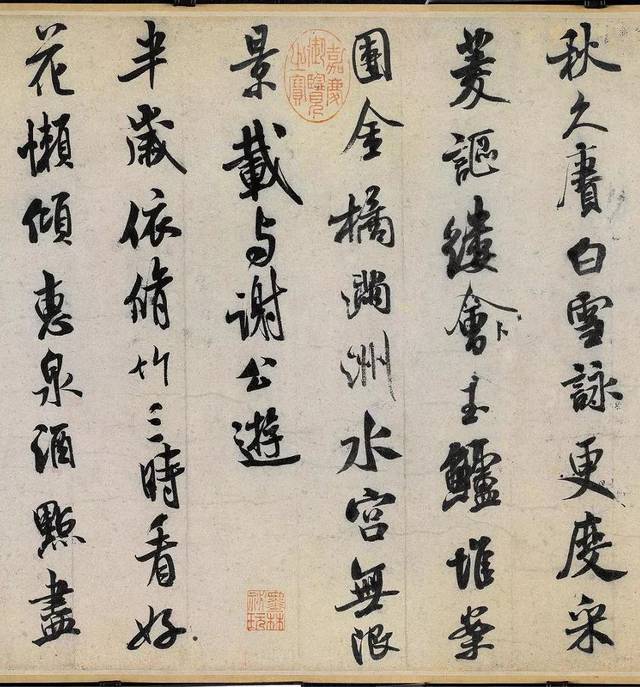 秋久賡白雪詠更度采
菱謳縷會卜玉鱸堆案
團金橘滿洲水宮無限
景載与謝公遊
半歲依脩竹三時看好
花懶傾惠泉酒點盡
嘉慶御覽之寶